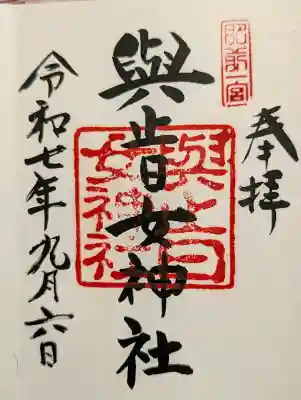 肥前一宮
奉拝
與止日女神社
與止日
女神社
令和七年九月六日